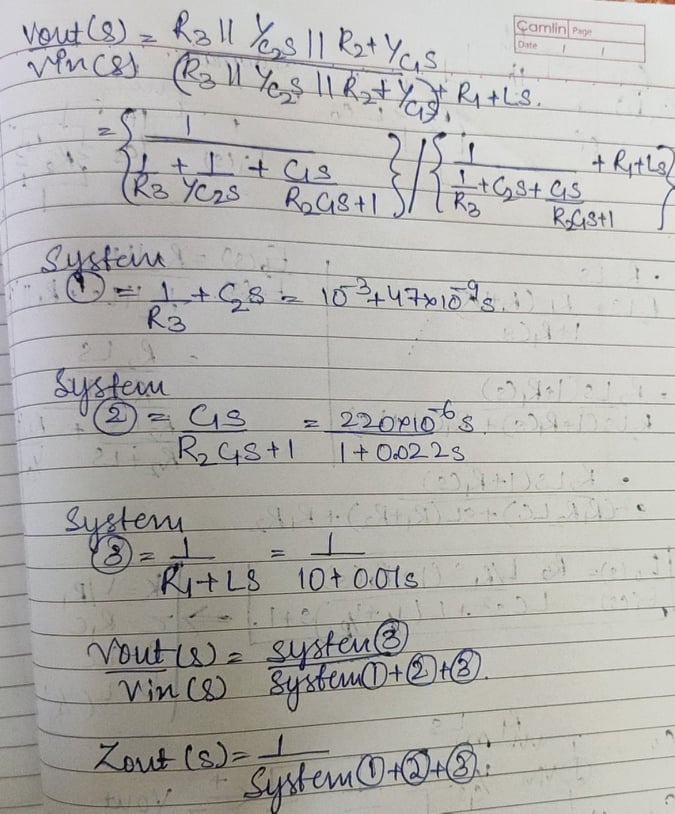 Camlin Page
Date / /
Vout(s) = R3 || 1/C2S || R2 + 1/C1S
Vin(s) (R3 || 1/C2S || R2 + 1/C1S) + R1 + LS.
= { 1 / (1/R3 + 1/(1/C2S) + C1S/(R2C1S+1)) } / { 1 / (1/R3 + C2S + C1S/(R2C1S+1)) + R1 + LS }
System
① = 1/R3 + C2S = 10^-3 + 47×10^-9 s.
System
② = C1S/(R2C1S+1) = 220×10^-6 s / (1+0.022s)
System
③ = 1/(R1+LS) = 1/(10+0.01s)
Vout(s) = System ③
Vin(s) System ① + ② + ③.
Zout(s) = 1 / System ① + ② + ③.